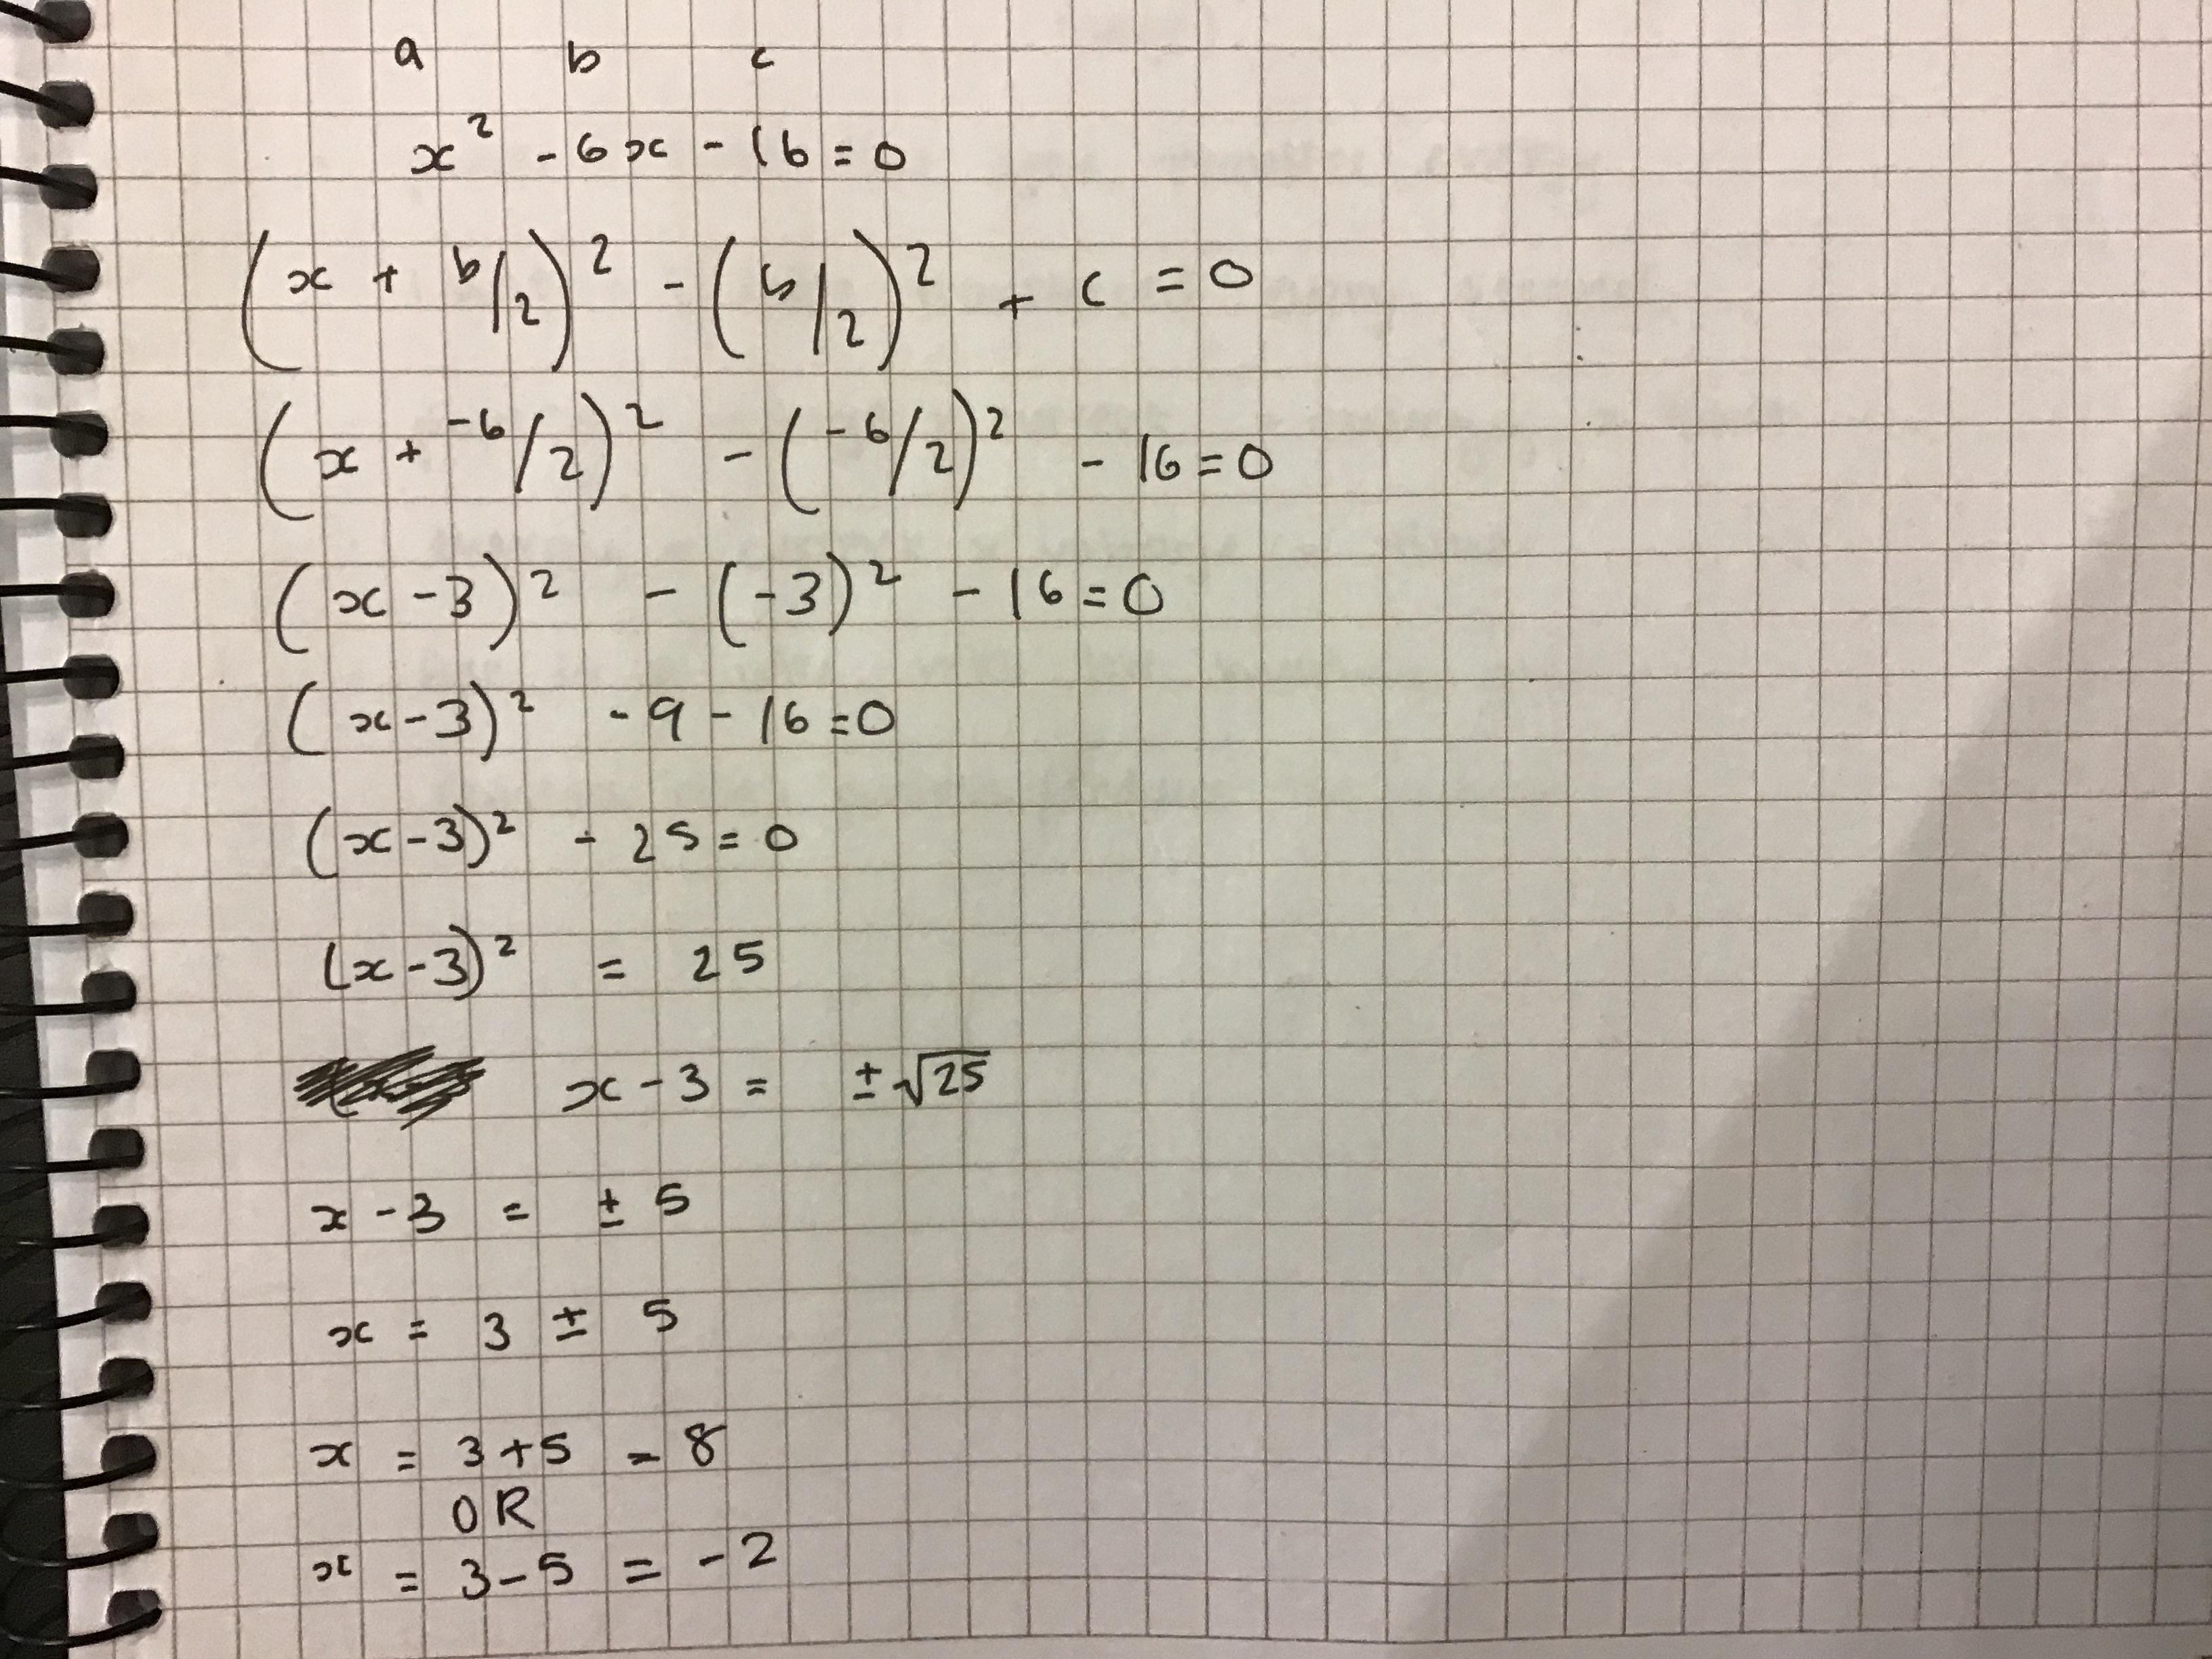 a b c
x² - 6x - 16 = 0
(x + b/2)² - (b/2)² + c = 0
(x + -6/2)² - (-6/2)² - 16 = 0
(x - 3)² - (-3)² - 16 = 0
(x - 3)² - 9 - 16 = 0
(x - 3)² - 25 = 0
(x - 3)² = 25
x - 3 = ± √25
x - 3 = ± 5
x = 3 ± 5
x = 3 + 5 = 8
OR
x = 3 - 5 = -2